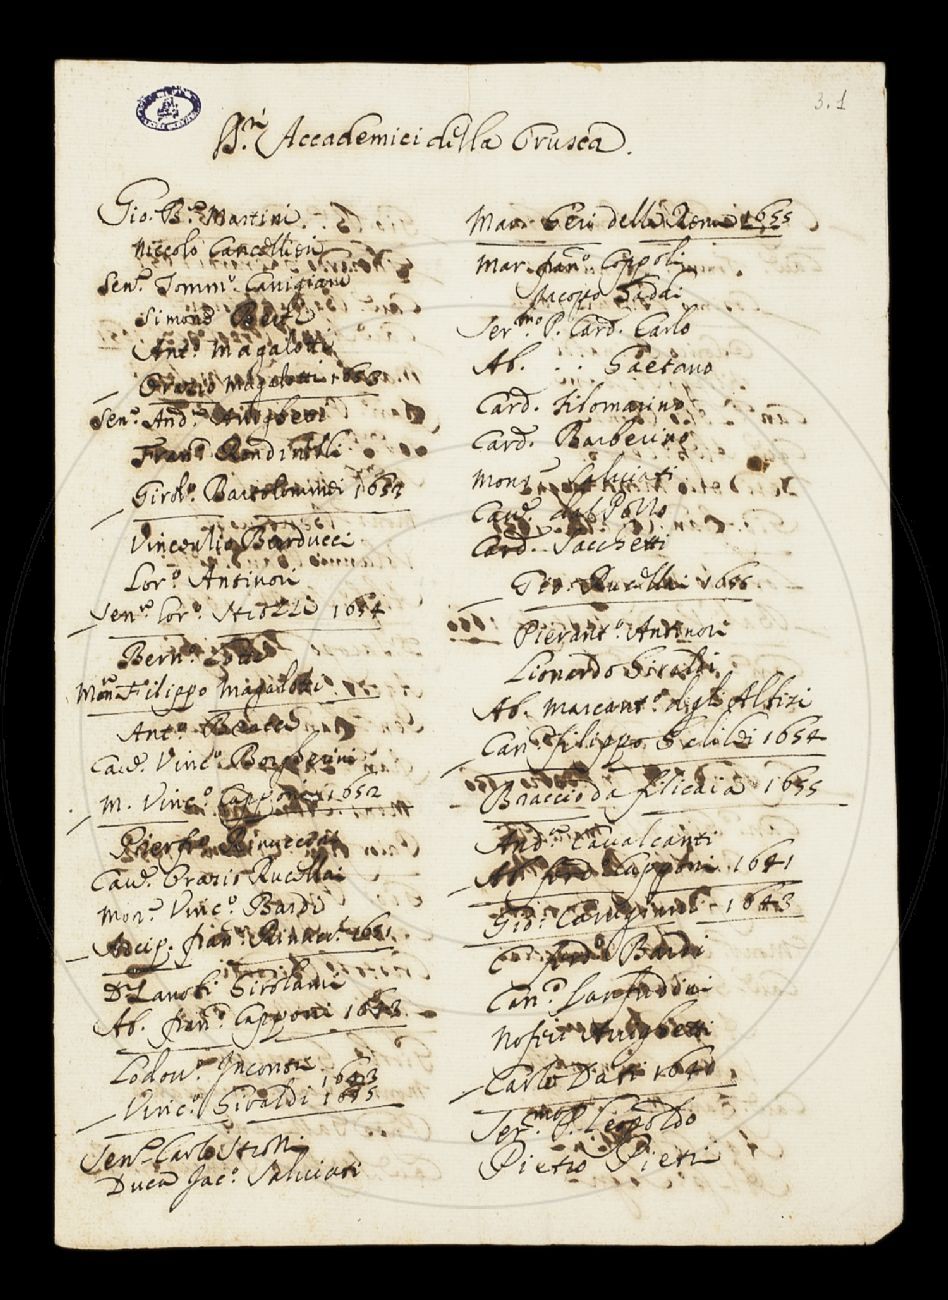 3.1
Accademici della Crusca.
Gio. B.a Martini
Niccolò Cancellieri
Sen.r Tomm.o Canigiani
Simone Berti
Ant.o Magalotti
Orazio Magalotti 1653
Sen.r And.a Arrighetti
Fran.o Rondinelli
Girol.o Bartolommei 1652
Vincenzio Barducci
Lor.o Antinori
Sen.r Lor.o Strozzi 1654
Bern.o
Mon.r Filippo Magalotti
Ant.o
Cav.r Vinc.o Borgherini
M. Vinc.o Capponi 1652
Pierfr.o Rinuccini
Cav.r Orazio Rucellai
Mon.r Vinc.o Bardi
Arcip. fran.o Rinucc.i 1651
D. Zanobi Girolami
Ab. fran.o Capponi 1643
Lodov.o Incontri
1643
Vinc.o Giraldi 1655
Sen.r Carlo Strozzi
Duca Jac.o Salviati
Mar. Geri della Rena 1655
Mar. fran.o Coppoli
Jacopo Gaddi
Ser.mo P. Card. Carlo
Ab. . . Gaetano
Card. Filomarino
Card. Barberino
Mons.r Salviati
Cav.r dal Pozzo
Card. Sacchetti
Gio. Rucellai 1656
Pierant.o Antinori
Lionardo Giraldi
Ab. Marcant.o degli Albizi
Can.o filippo 1654
Braccio da filicaia 1655
And.a Cavalcanti
Ab. ferd.o Capponi 1641
Gio. Canigiani 1643
C. ferd.o Bardi
Can.o
Nofri Arrighetti
Carlo Dati 1640
Ser.mo P. Leopoldo
Pietro Pieri